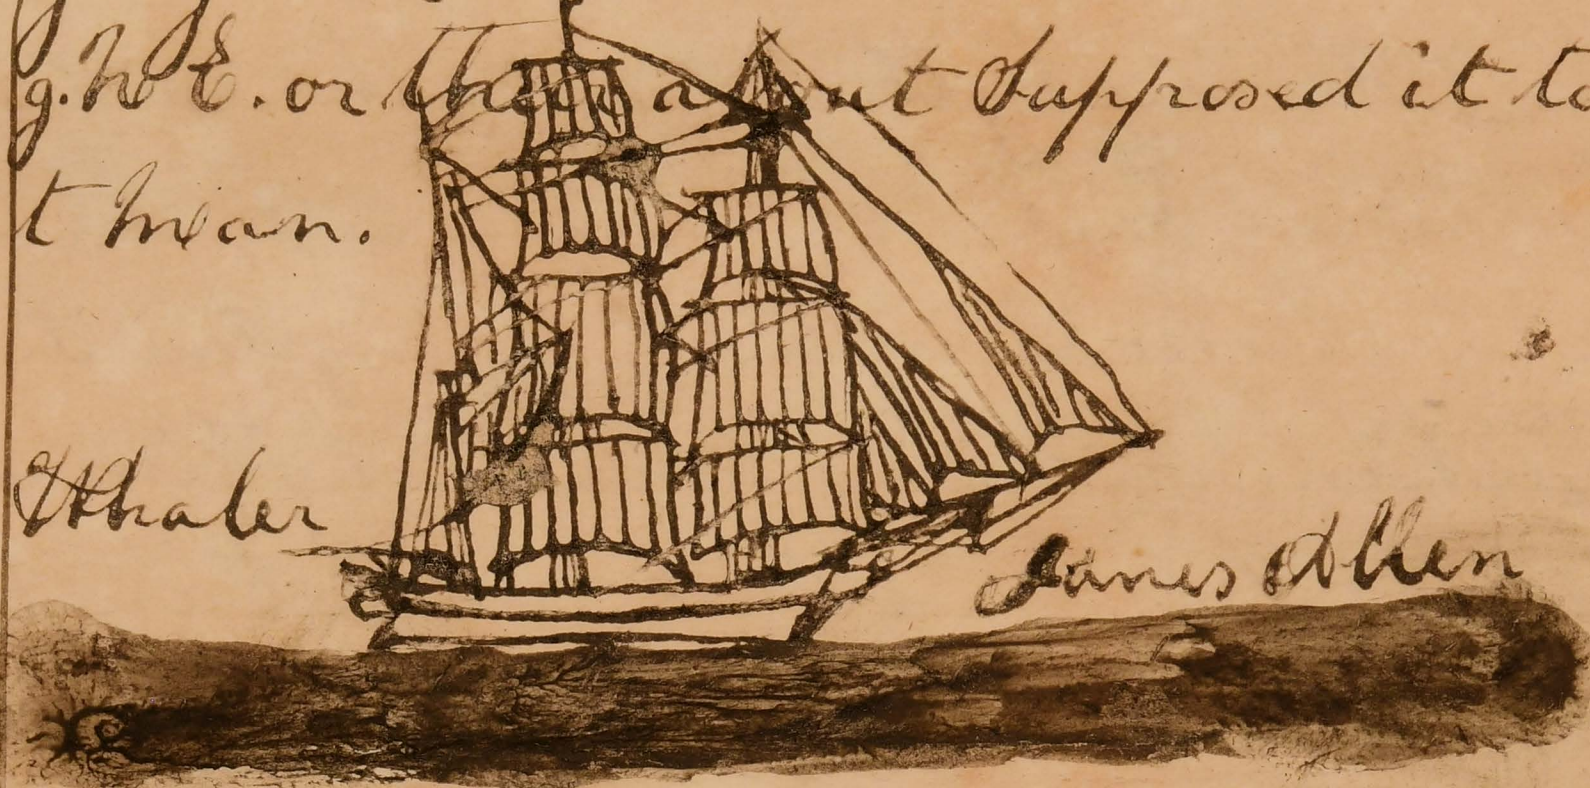 g. N E. or there about Supposed it to
t Mean.
Whaler
James Allen